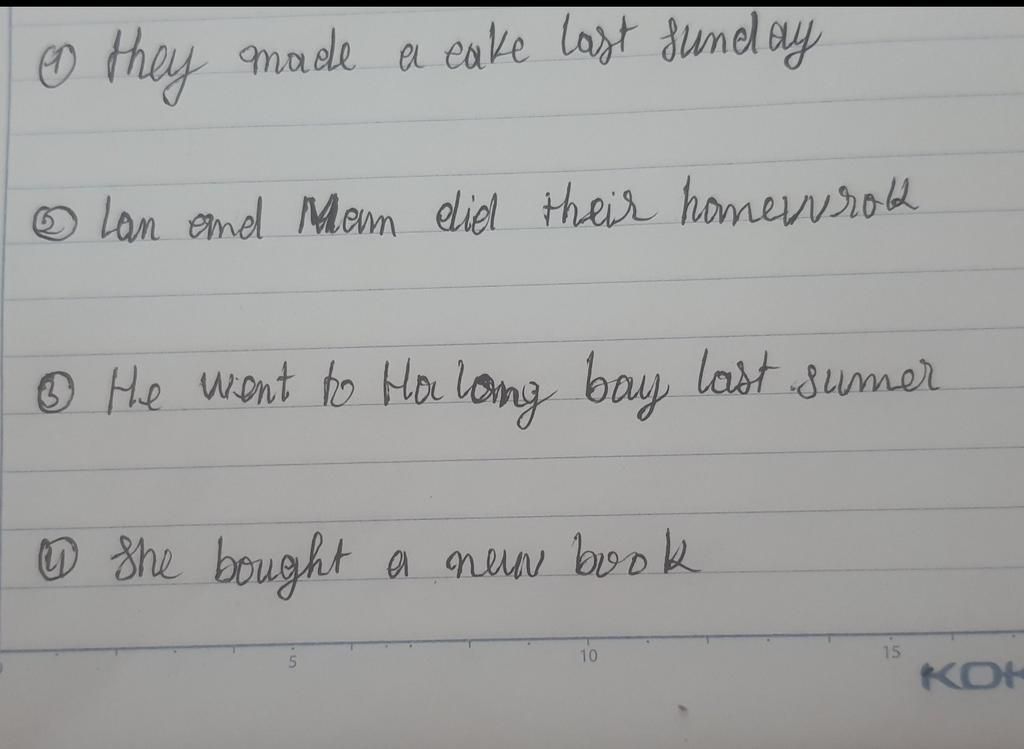 ① they made a cake last sunday
② Lan and Mam did their homewrok
③ He went to Ha long bay last sumer
④ She bought a new book
5 10 15
KOK